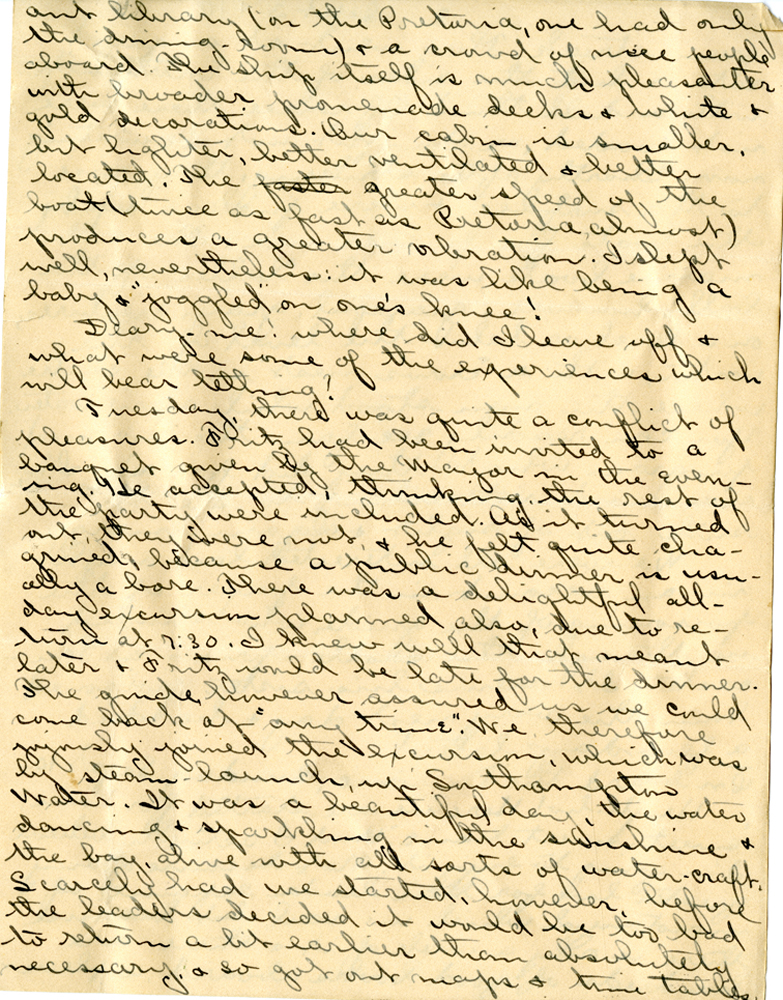 ant library (on the Pretoria, one had only
the dining-room) & a crowd of nice people
aboard. The ship itself is much pleasanter
with broader promenade decks & white &
gold decorations. Our cabin is smaller,
but lighter, better ventilated & better
located. The faster greater speed of the
boat (twice as fast as Pretoria, almost)
produces a greater vibration. I slept
well, nevertheless: it was like being a
baby & "joggled" on one's knee!
Deary-me! where did I leave off &
what were some of the experiences which
will bear telling!
Tuesday, there was quite a conflict of
pleasures. Fritz had been invited to a
banquet given by the Mayor in the even-
ing. He accepted, thinking the rest of
the party were included. As it turned
out, they were not, & he felt quite cha-
grined, because a public dinner is usu-
ally a bore. There was a delightful all-
day excursion planned also, due to re-
turn at 7:30. I knew well that meant
later & Fritz would be late for the dinner.
The guide, however assured us we could
come back at "any time". We therefore
joyously joined the excursion, which was
by steam-launch, up Southampton
Water. It was a beautiful day, the water
dancing & sparkling in the sunshine &
the bay, alive with all sorts of water-craft.
Scarcely had we started, however, before
the leaders decided it would be too bad
to return a bit earlier than absolutely
necessary, & so got out maps & time tables.